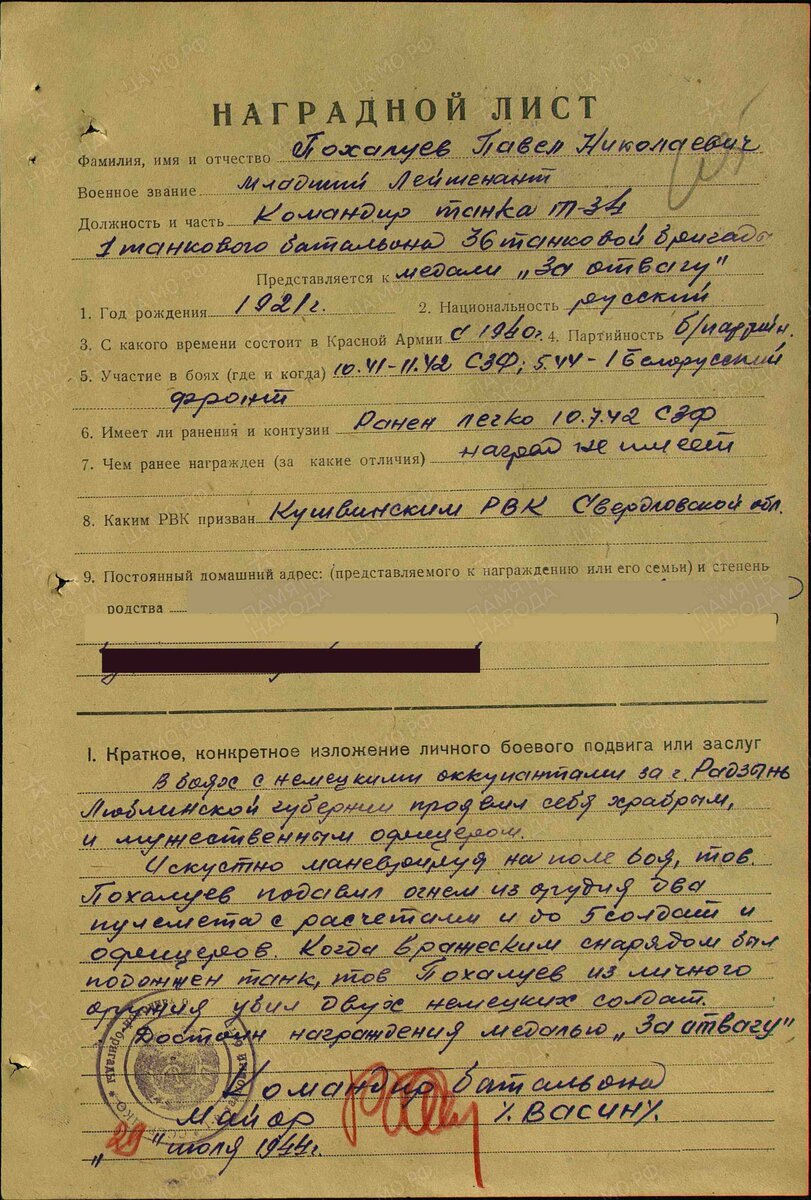 НАГРАДНОЙ ЛИСТ
Фамилия, имя и отчество Похалуев Павел Николаевич
Военное звание Младший Лейтенант
Должность и часть Командир танка Т-34
1 танкового батальона 36 танковой бригады
Представляется к медали „За отвагу"
1. Год рождения 1921 г. 2. Национальность русский
3. С какого времени состоит в Красной Армии с 1940 г. 4. Партийность б/партийн.
5. Участие в боях (где и когда) 10.41-11.42 СЗФ; 5.44-1 Белорусский
фронт
6. Имеет ли ранения и контузии Ранен легко 10.7.42 СЗФ
7. Чем ранее награжден (за какие отличия) наград не имеет
8. Каким РВК призван Кушвинским РВК Свердловской обл.
9. Постоянный домашний адрес: (представляемого к награждению или его семьи) и степень
родства
I. Краткое, конкретное изложение личного боевого подвига или заслуг
В боях с немецкими оккупантами за г. Радзынь
Люблинской губернии проявил себя храбрым,
и мужественным офицером.
Искустно маневрируя на поле боя, тов.
Похалуев подавил огнем из орудия два
пулемета с расчетами и до 5 солдат и
офицеров. Когда вражеским снарядом был
подожжен танк, тов Похалуев из личного
оружия убил двух немецких солдат.
Достоин награждения медалью „За отвагу"
Командир батальона
Майор /ВАСИН/.
„29" июля 1944 г.
ЦАМО.РФ
ПАМЯТЬ
НАРОДА